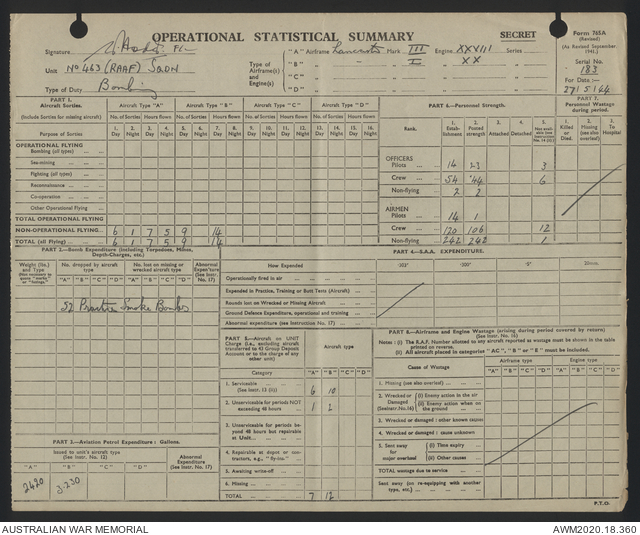 OPERATIONAL STATISTICAL SUMMARY
SECRET
Form 765A
(Revised)
(As Revised September, 1941.)
Serial No. 183
For Date:—
27/5/44
Signature F/L
Unit No 463 (RAAF) Sqdn
Type of Duty Bombing
Type of Airframe(s) and Engine(s)
"A" Airframe Lancaster Mark III Engine XXXVIII Series
"B" " " I " XX "
"C" " " " "
"D" " " " "
PART 1.
Aircraft Sorties.
(Include Sorties for missing aircraft)
Purpose of Sorties
Aircraft Type "A" Aircraft Type "B" Aircraft Type "C" Aircraft Type "D"
No. of Sorties Hours flown No. of Sorties Hours flown No. of Sorties Hours flown No. of Sorties Hours flown
1. Day 2. Night 3. Day 4. Night 5. Day 6. Night 7. Day 8. Night 9. Day 10. Night 11. Day 12. Night 13. Day 14. Night 15. Day 16. Night
OPERATIONAL FLYING
Bombing (all types)
Sea-mining
Fighting (all types)
Reconnaissance
Co-operation
Other Operational Flying
TOTAL OPERATIONAL FLYING
NON-OPERATIONAL FLYING 6 1 7 5 9 14
TOTAL (all Flying) 6 1 7 5 9 14
PART 6.—Personnel Strength.
Rank. 1. Establishment 2. Posted strength 3. Attached 4. Detached 5.
OFFICERS
Pilots 14 23 3
Crew 54 44 6
Non-flying 2 2
AIRMEN
Pilots 14 1
Crew 120 106 12
Non-flying 242 242 1
PART 7.
Personnel Wastage during period.
1. Killed or Died. 2. Missing (see also overleaf) 3. To Hospital
PART 2.—Bomb Expenditure (including Torpedoes, Mines, Depth-Charges, etc.)
Weight (lbs.) and Type
No. dropped by aircraft type
No. lost on missing or wrecked aircraft type
Abnormal Expenditure (See Instr. No. 17)
"A" "B" "C" "D" "A" "B" "C" "D"
52 Practice Smoke Bombs
PART 4.—S.A.A. EXPENDITURE.
How Expended ·303" ·300" ·5" 20mm.
Operationally fired in air
Expended in Practice, Training or Butt Tests (Aircraft)
Rounds lost on Wrecked or Missing Aircraft
Ground Defence Expenditure, operational and training
Abnormal expenditure (see Instruction No. 17)
PART 5.—Aircraft on UNIT Charge (i.e., excluding aircraft transferred to 43 Group Deposit Account or to the charge of any other unit)
Aircraft type
Category "A" "B" "C" "D"
1. Serviceable (See Instr. 13 (ii)) 6 10
2. Unserviceable for periods NOT exceeding 48 hours 1 2
3. Unserviceable for periods beyond 48 hours but repairable at Unit
4. Repairable at depot or contractors, e.g., "fly-ins."
5. Awaiting write-off
6. Missing
TOTAL 7 12
PART 8.—Airframe and Engine Wastage (arising during period covered by return)
(See Instr. No. 16)
Notes : (i) The R.A.F. Number allotted to any aircraft reported as wastage must be shown in the table printed on reverse.
(ii) All aircraft placed in categories "AC", "B" or "E" must be included.
Cause of Wastage
Airframe type Engine type
"A" "B" "C" "D" "A" "B" "C" "D"
1. Missing (see also overleaf)
2. Wrecked or Damaged (See Instr. No. 16) (i) Enemy action in the air
(ii) Enemy action when on the ground
3. Wrecked or damaged : other known causes
4. Wrecked or damaged : cause unknown
5. Sent away for major overhaul (i) Time expiry
(ii) Other causes
TOTAL wastage due to service
Sent away (on re-equipping with another type, etc.)
PART 3.—Aviation Petrol Expenditure : Gallons.
Issued to unit's aircraft type (See Instr. No. 12)
Abnormal Expenditure (See Instr. No. 17)
"A" "B" "C" "D"
2420 3230
P.T.O.
AUSTRALIAN WAR MEMORIAL
AWM2020.18.360